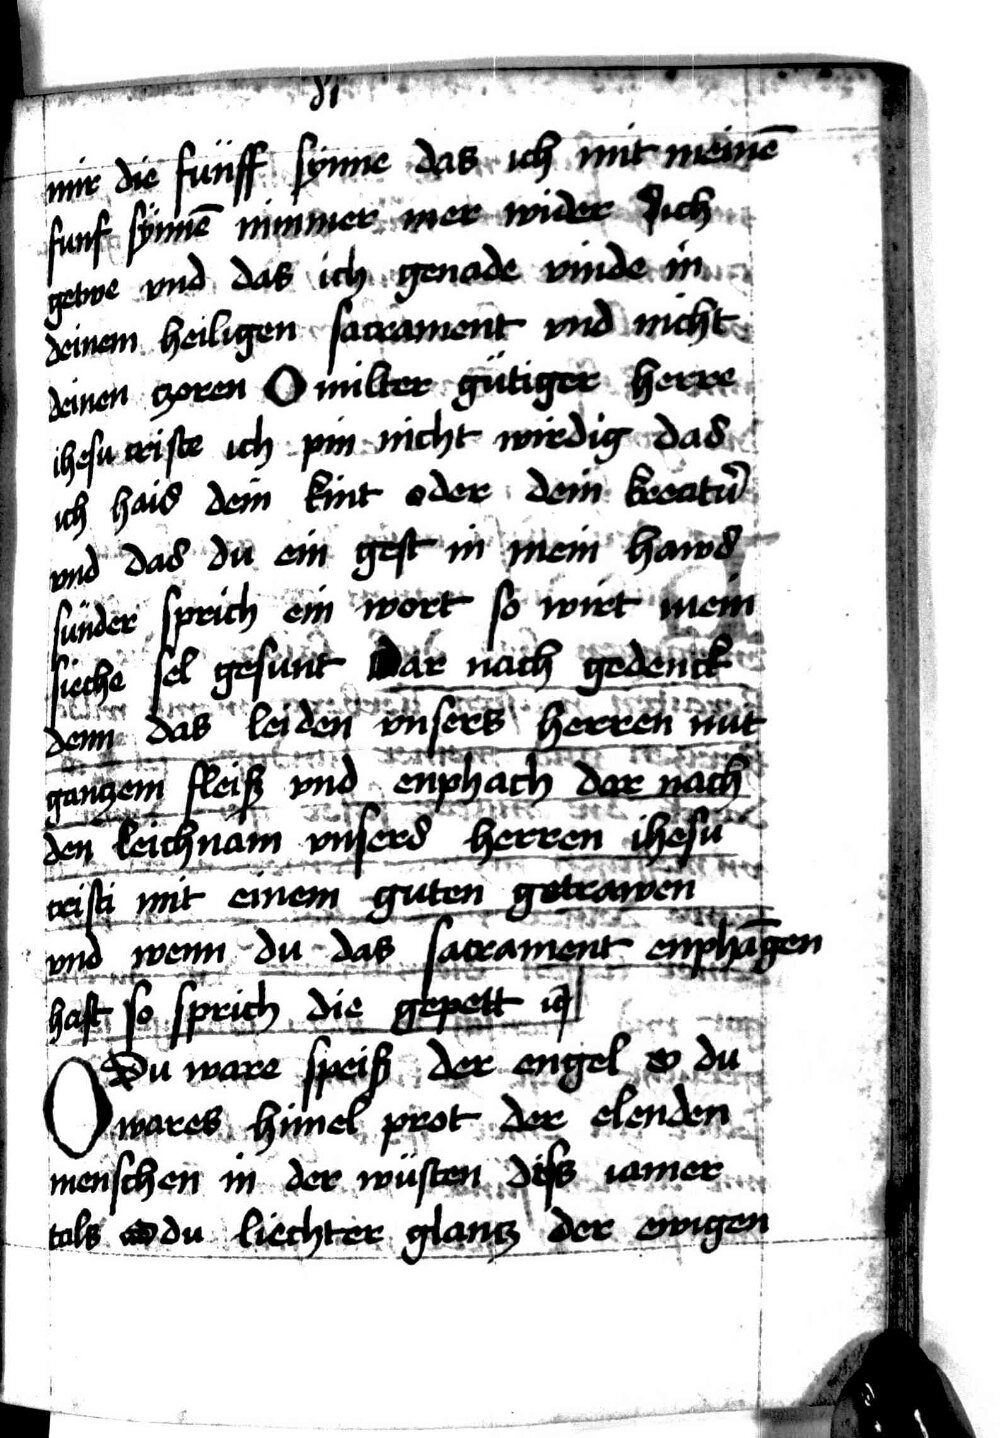 mir die fünff synne das ich mit meinē
funf sÿnnē nimmer mer wider dich
getwe vnd das ich genade vinde in
deinem heiligen sacrament vnd nicht
deinen czoren O milter gütiger herre
ihesu criste ich pin nicht wirdig das
ich hais dein kint oder dein kreatur̃
vnd das du ein gest in mein haws
sunder sprich ein wort so wirt mein
sieche sel gesunt Dar nach gedenck
denn das leiden vnsers herren mit
gantzem fleiß vnd enphach dar nach
den leichnam vnsers herren ihesu
cristi mit einem guten getrawen
vnd wenn du das sacrament enphāgen
hast so sprich die gepett
O Du ware speiß der engel o du
wares himel prot der elenden
menschen in der wüsten diss iamer
tals o du liechter glantz der ewigen